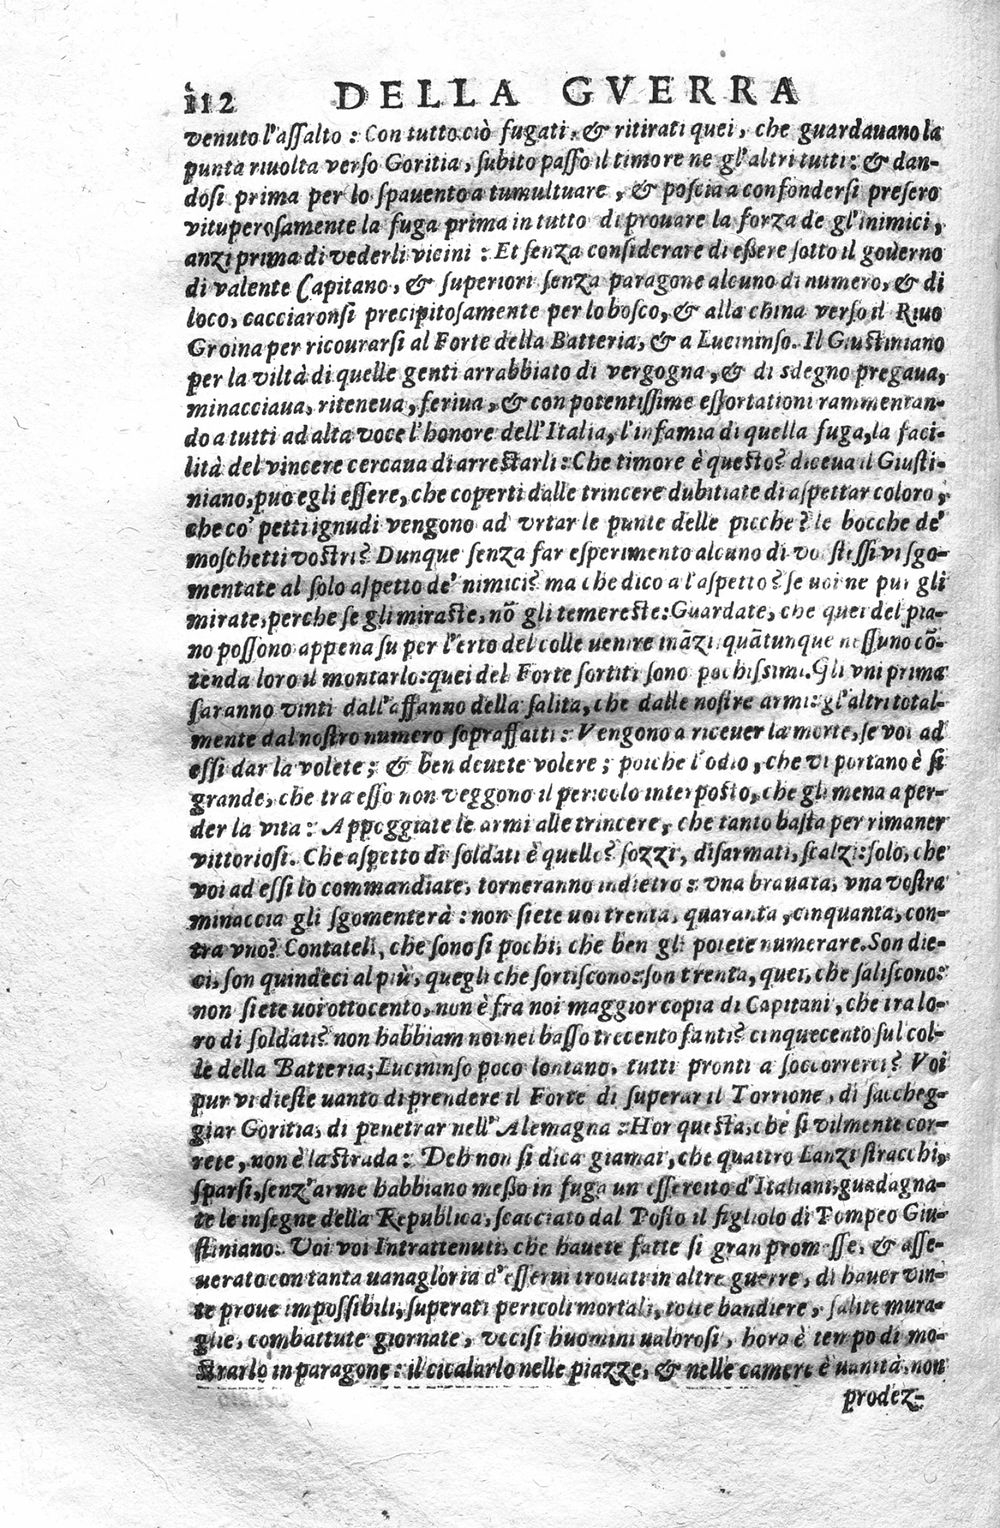 112 DELLA GVERRA
venuto l'aſſalto : Con tutto ciò fugati, & ritirati quei, che guardauano la
punta riuolta verſo Goritia, ſubito paſſo il timore ne gl'altri tutti: & dan-
doſi prima per lo ſpauento a tumultuare, & poſcia a confonderſi preſero
vituperoſamente la fuga prima in tutto di prouare la forza de gl'inimici,
anzi prima di vederli vicini : Et ſenza conſiderare di eßere ſotto il gouerno
di valente Capitano, & ſuperiori ſenza paragone alcuno di numero, & di
loco, cacciaronſi precipitoſamente per lo boſco, & alla china verſo il Riuo
Groina per ricourarſi al Forte della Batteria, & a Lucininſo. Il Giuſtiniano
per la viltà di quelle genti arrabbiato di vergogna, & di sdegno pregaua,
minacciaua, riteneua, feriua, & con potentiſſime eſſortationi rammentan-
do a tutti ad alta voce l'honore dell'Italia, l'infamia di quella fuga, la faci-
lità del vincere cercaua di arreſtarli: Che timore è queſto? diceua il Giuſti-
niano, puo egli eſſere, che coperti dalle trincere dubitiate di aſpettar coloro,
che co' petti ignudi vengono ad vrtar le punte delle picche? le bocche de'
moſchetti voſtri? Dunque ſenza far eſperimento alcuno di voi ſteſſi vi sgo-
mentate al ſolo aſpetto de' nimici? ma che dico a l'aſpetto? ſe uoi ne pur gli
mirate, perche ſe gli miraſte, nõ gli temereſte: Guardate, che quei del pia-
no poſſono appena ſu per l'erto del colle venire inãzi quãtunque neſſuno cõ-
tenda loro il montarlo: quei del Forte ſortiti ſono pochiſſimi. Gli vni prima
ſaranno vinti dall'affanno della ſalita, che dalle noſtre armi: gl'altri total-
mente dal noſtro numero ſopraffatti : Vengono a riceuer la morte, ſe voi ad
eſſi dar la volete; & ben deuete volere; poiche l'odio, che vi portano è ſi
grande, che tra eſſo non veggono il pericolo interpoſto, che gli mena a per-
der la vita : Appoggiate le armi alle trincere, che tanto baſta per rimaner
vittorioſi. Che aſpetto di ſoldati è quello? ſozzi, diſarmati, ſcalzi: ſolo, che
voi ad eſſi lo commandiate, torneranno indietro : vna brauata, vna voſtra
minaccia gli ſgomenterà : non ſiete uoi trenta, quaranta, cinquanta, con-
tra vno? Contateli, che ſono ſi pochi, che ben gli potete numerare. Son die-
ci, ſon quindeci al più, quegli che ſortiſcono: ſon trenta, quei, che ſaliſcono:
non ſiete uoi ottocento, non è fra noi maggior copia di Capitani, che tra lo-
ro di ſoldati? non habbiam noi nei baſſo trecento fanti? cinquecento ſul col-
le della Batteria; Lucininſo poco lontano, tutti pronti a ſoccorrerci? Voi
pur vi dieſte uanto di prendere il Forte di ſuperar il Torrione, di ſaccheg-
giar Goritia, di penetrar nell'Alemagna : Hor queſta, che ſi vilmente cor-
rete, non è la ſtrada : Deh non ſi dica giamai, che quattro Lanzi ſtracchi,
ſparſi, ſenz'arme habbiano meßo in fuga un eſſercito d'Italiani, guadagna-
te le inſegne della Republica, ſcacciato dal Poſto il figliolo di Pompeo Giu-
ſtiniano. Voi voi Intrattenuti, che hauete fatte ſi gran promeſſe, & aſſe-
uerato con tanta uanagloria d'eſſerui trouati in altre guerre, di hauer vin-
te proue impoſſibili, ſuperati pericoli mortali, tolte bandiere, ſalite mura-
glie, combattute giornate, vcciſi huomini ualoroſi, hora è tempo di mo-
ſtrarlo in paragone : il cicalarlo nelle piazze, & nelle camere è uanità, non
prodez-